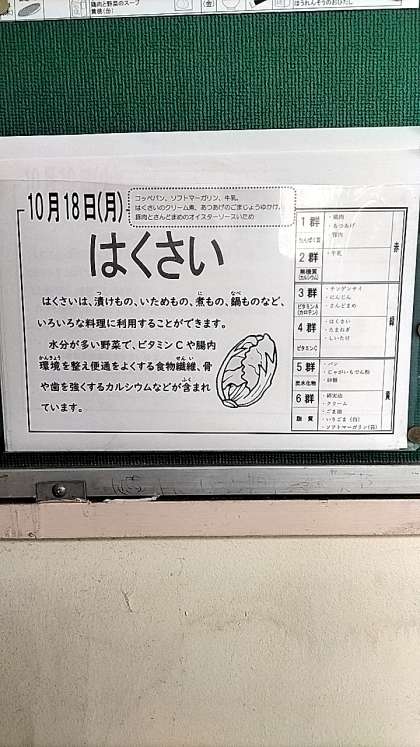 鶏肉と野菜のスープ
ほうれんそうのおひたし
10月18日(月)
コッペパン、ソフトマーガリン、牛乳、
はくさいのクリーム煮、あつあげのごまじょうゆかけ、
豚肉とさんどまめのオイスターソースいため
はくさい
はくさいは、漬けもの、いためもの、煮もの、鍋ものなど、
いろいろな料理に利用することができます。
水分が多い野菜で、ビタミンCや腸内
環境を整え便通をよくする食物繊維、骨
や歯を強くするカルシウムなどが含まれ
ています。
1群
たんぱく質
・鶏肉
・あつあげ
・豚肉
2群
無機質
(カルシウム)
・牛乳
赤
3群
ビタミンA
(カロテン)
・チンゲンサイ
・にんじん
・さんどまめ
4群
ビタミンC
・はくさい
・たまねぎ
・しいたけ
緑
5群
炭水化物
・パン
・じゃがいもでん粉
・砂糖
6群
脂質
・綿実油
・クリーム
・ごま油
・いりごま(白)
・ソフトマーガリン
黄